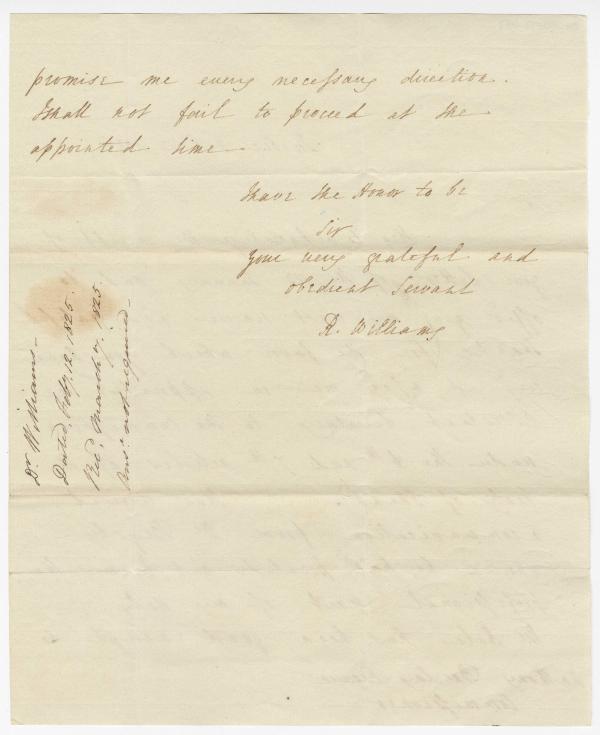 promise me every necessary direction.
I shall not fail to proceed at the
appointed time
I have the Honor to be
Sir
Your very grateful and
obedient Servant
R. Williams
Dr. Williams
Dated, Feby. 12. 1825.
Recd. March 7. 1825.
Ansr. not required